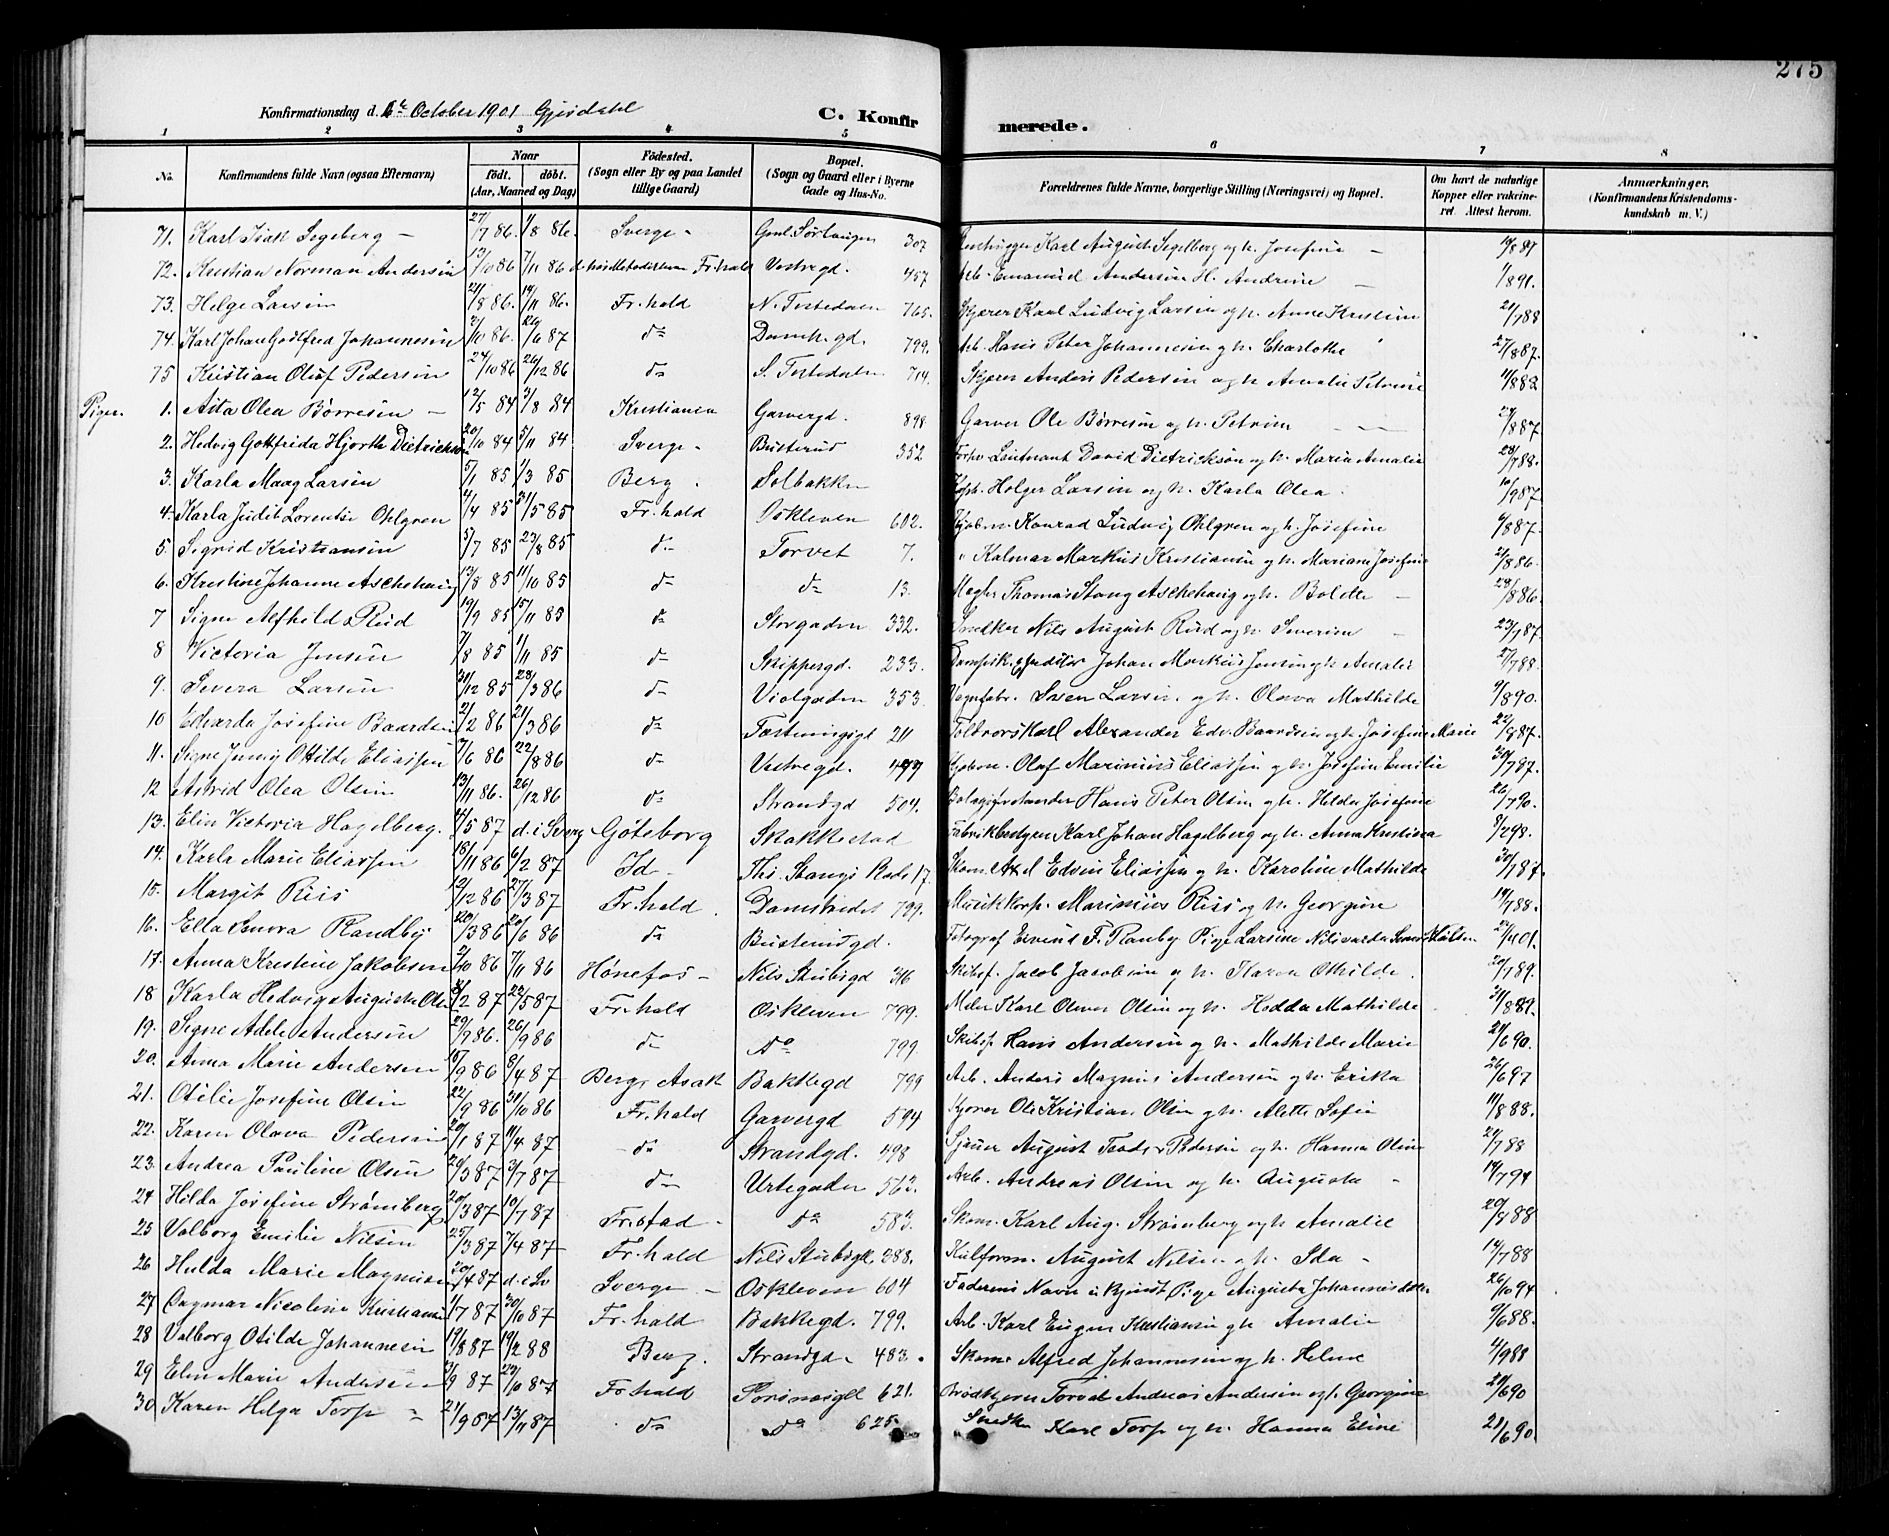 275
Konfirmationsdag d. 6te October 1901 Gjerdahl
C. Konfirmerede.
1 2 3 4 5 6 7 8
No. Konfirmandens fulde Navn (ogsaa Efternavn) Naar födt. döbt. (Aar, Maaned og Dag) Födested. (Sogn eller By og paa Landet tillige Gaard) Bopæl. (Sogn og Gaard eller i Byerne Gade og Hus-No. Forældrenes fulde Navne, borgerlige Stilling (Næringsvei) og Bopæl. Om havt de naturlige Kopper eller vakcineret. Attest herom. Anmærkninger. (Konfirmandens Kristendomskundskab m. V.)
71. Karl Isak Segeberg - 27/7 86. 1/8 86. Sverge - 307 Karl August Segelberg og h. Josefine -
72. Kristian Norman Andersen 13/10 86 7/11 86 Fr.hald Vestregd. 457 Arb. Emanuel Andersen H. Andrine - 1/891.
73. Helge Larsen 21/8 86. 14/11 86. Fr.hald N. Tistedalen 765. Skjærer Karl Ludvig Larsen og h. Anne Kristine 21/788
74. Karl Johan Gotfred Johannesen 86. 87 do Damh.gd. 799. Arb. Hans Peter Johannesen og h. Charlotte 27/887.
75 Kristian Oluf Pedersen 24/10 86 26/12 86 do S. Tistedalen 714. Skjærer Anders Pedersen og h. Amalie Petrine 11/888
Piger.
1. Aita Olea Børresen - 12/5 84 3/8 84 Kristiania Garvergd. 898 Garver Ole Børresen og h. Petrine 27/887
2. Hedvig Gottfrida Hjorth Dietrichson 20/10 84 5/11 84 Sverge - Busterud 352 Lieutnant David Dietrickson og h. Maria Amalie 28/788.
3. Karla Maag Larsen 5/1 85 1/3 85 Berg. Solbakken Holger Larsen og h. Karla Olea. 10/987
4. Karla Judit Lorentse Ohlgren 2/4 85 31/5 85 Fr.hald Oskleven 602. Kjøbm. Konrad Ludvig Ohlgren og h. Josefine 6/887.
5. Sigrid Kristiansen 5/7 85 23/8 85 do Torvet 7. " Kalmar Markus Kristiansen og h. Mariane Josefine 2/886.
6. Kristine Johanne Aschehaug 13/8 85 11/10 85 do do 13. Megler Thomas Stang Aschehaug og h. Bolde - 28/886.
7 Signe Alfhild Rud 19/9 85 15/11 85 do Storgaden 332. Snedker Nils August Rud og h. Severine - 23/787.
8 Victoria Jensen 7/8 85 1/11 85 do Skippergd. 233. Dampsk. Johan Markus Jensen og h. Amalie 27/788.
9. Severa Larsen 31/12 85 28/3 86 do Violgaden 353. Vognfabr. Sven Larsen og h. Olava Mathilde 9/890.
10 Edvarda Josefine Baardsen 2/2 86 21/3 86 do Fæstningsgd 211 Toldvorskarl Alexander Edv. Baardsen og h. Josefine Marie 22/887.
11. Signe Jenny Otilde Eliassen 7/6 86 22/8 86 do Vestregd. Kjøbm. Olaf Marinius Eliassen og h. Josefine Emilie 30/787.
12 Astrid Olea Olsen 13/11 86. 26/12 86 do Strandgd 504. Bolagsforstander Hans Peter Olsen og h. Hilda Josefine 26/790.
13. Elin Victoria Hagelberg. 4/5 87 d. i Sverg Göteborg Skakkestad Fabrikbestyrer Karl Johan Hagelberg og h. Anna Kristina 8/298.
14. Karla Marie Eliassen 18/11 86 6/2 87 Id - Ths. Stangs Stad 17. Skom. Axel Edvin Eliassen og h. Karoline Mathilde 30/787.
15. Margit Riis 12/12 86 27/3 87 Fr.hald. Damstrædet 799. Musikkorp. Marinius Riis og h. Georgine 14/788.
16. Ella Senora Randby 20/3 86 20/6 86 do Busterudgd. Fotograf Eivind F. Ranby Pige Larsine Nilsvarda 
17. Anna Kristine Jakobsen 2/10 86 7/11 86 Hønefos - Nils Stubsgd 316 Skibsf. Jacob Jacobsen og h. Karen Othilde. 20/789.
18 Karla Hedvig Auguste Olsen 8/2 87 22/5 87 Fr.hald Oskleven 799. Maler Karl Oliver Olsen og h. Hedda Mathilde 31/889.
19. Signe Adele Andersen 29/9 86. 26/9 86 do do 799 Skibsf. Hans Andersen og h. Mathilde Marie 21/690.
20. Anna Marie Andersen 15/9 86 8/4 87 Berg, Asak Bakkegd 799 Arb. Anders Magnus Andersen og h. Erika 26/697
21. Otilie Josefine Olsen 22/9 86 31/10 86 Fr.hald Garvergd 594 Kjører Ole Kristian Olsen og h. Alette Sofie 11/888.
22. Karen Olava Pedersen 20/1 87 11/4 87 - do Strandgd. 498 August Teodor Pedersen og h. Hanna Oline 21/788
23. Andrea Pauline Olsen 26/3 87 3/7 87 do Urtegaden 563. Arb. Andreas Olsen og h. Augusta - 14/794
24 Hilda Josefine Strømberg 20/3 87 10/7 87 Fr.stad - do 583. Skom. Karl Aug. Strømberg og h. Amalie 20/888
25 Valborg Emilie Nilsen 25/3 87 7/4 87 Fr.hald Nils Stubsgd. 388. August Nilsen og h. Ida - 14/788
26 Hulda Marie Magnusen 20/4 87 d. i Sv Sverge - Oskleven 604 Faderens Navn u kjendt Pige Augusta Johannesdatter 26/1094
27 Dagmar Nicoline Kristiansen 1/7 87 30/10 87 Fr.hald Bakkegd. 799. Arb. Karl Eugen Kristiansen og h. Amalie 9/688.
28 Valborg Otilde Johannesen 19/8 87 19/2 88 Berg. Strandgd. 483. Skom. Alfred Johannesen og h. Helene 4/988
29 Elen Marie Andersen 2/9 87 87 Fr.hald 621. Brødkjører Torvald Andreas Andersen og h. Georgine 21/690
30 Karen Helga Torp - 21/9 87 13/11 87 do do 625. Snedker Karl Torp og h. Hanna Eline 21/690.